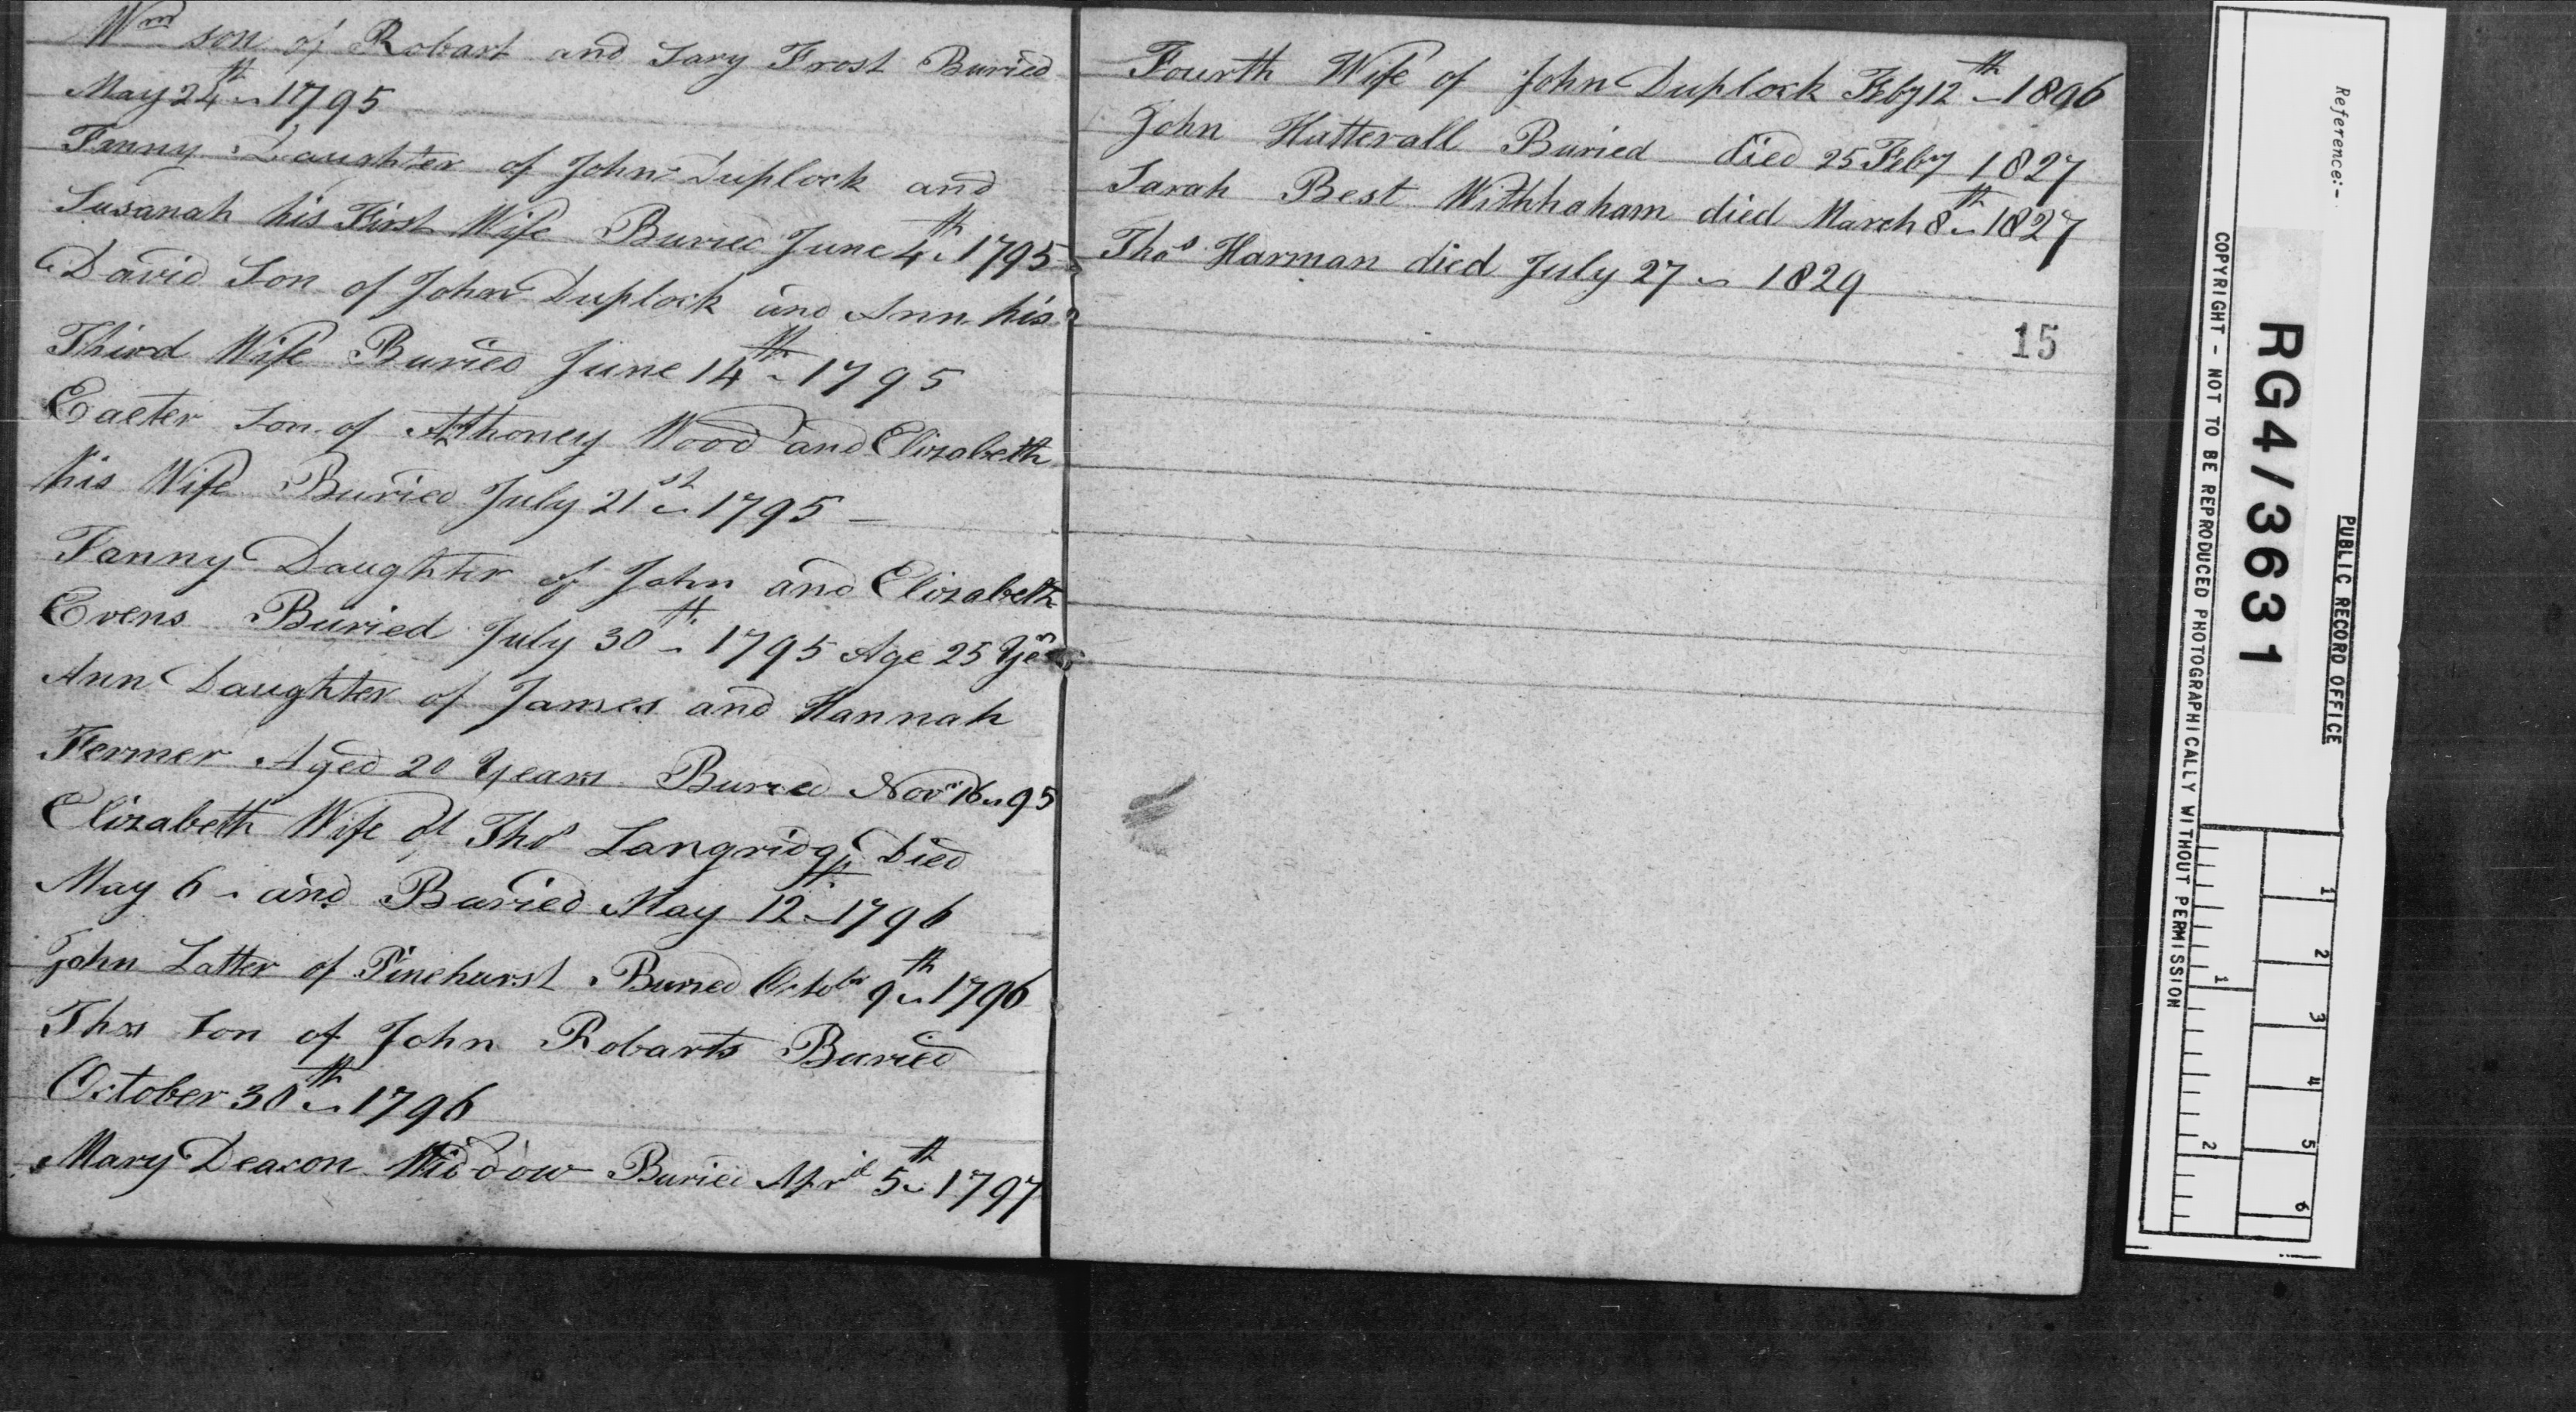 Wm son of Robart and Sary Frost Buried
May 24th 1795
Fanny Daughter of John Duplock and
Susanah his First Wife Buried June 4th 1795
David Son of John Duplock and Ann his
Third Wife Buried June 14th 1795
Exeter Son of Athoney Wood and Elizabeth
his Wife Buried July 21st 1795
Fanny Daughter of John and Elizabeth
Evens Buried July 30th 1795 Age 25 Yes
Ann Daughter of James and Hannah
Fermer Aged 20 Years Buried Novr 16 95
Elizabeth Wife of Thos Langridge Died
May 6 and Buried May 12th 1796
John Latter of Pinehurst Buried Octobr 9th 1796
Thos Son of John Robarts Buried
October 30th 1796
Mary Deacon Widdow Buried April 5th 1797
Fourth Wife of John Duplock Feby 12th 1806
John Hatterall Buried died 25 Feby 1827
Sarah Best Withhaham died March 8th 1827
Thos Harman died July 27 1829
15
Reference:-
PUBLIC RECORD OFFICE
RG4/3631
COPYRIGHT - NOT TO BE REPRODUCED PHOTOGRAPHICALLY WITHOUT PERMISSION
1 2 3 4 5 6
1 2